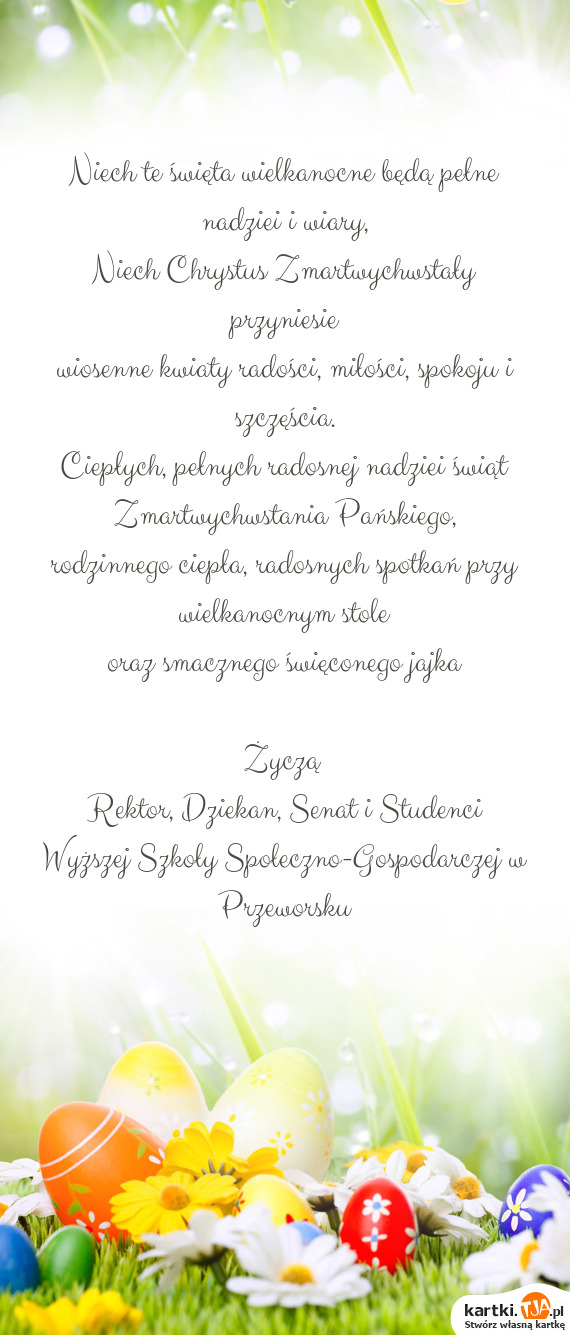 Niech te święta wielkanocne będą pełne
nadziei i wiary,
Niech Chrystus Zmartwychwstały
przyniesie
wiosenne kwiaty radości, miłości, spokoju i
szczęścia.
Ciepłych, pełnych radosnej nadziei świąt
Zmartwychwstania Pańskiego,
rodzinnego ciepła, radosnych spotkań przy
wielkanocnym stole
oraz smacznego święconego jajka
Życzą
Rektor, Dziekan, Senat i Studenci
Wyższej Szkoły Społeczno-Gospodarczej w
Przeworsku
kartki.TJA.pl
Stwórz własną kartkę